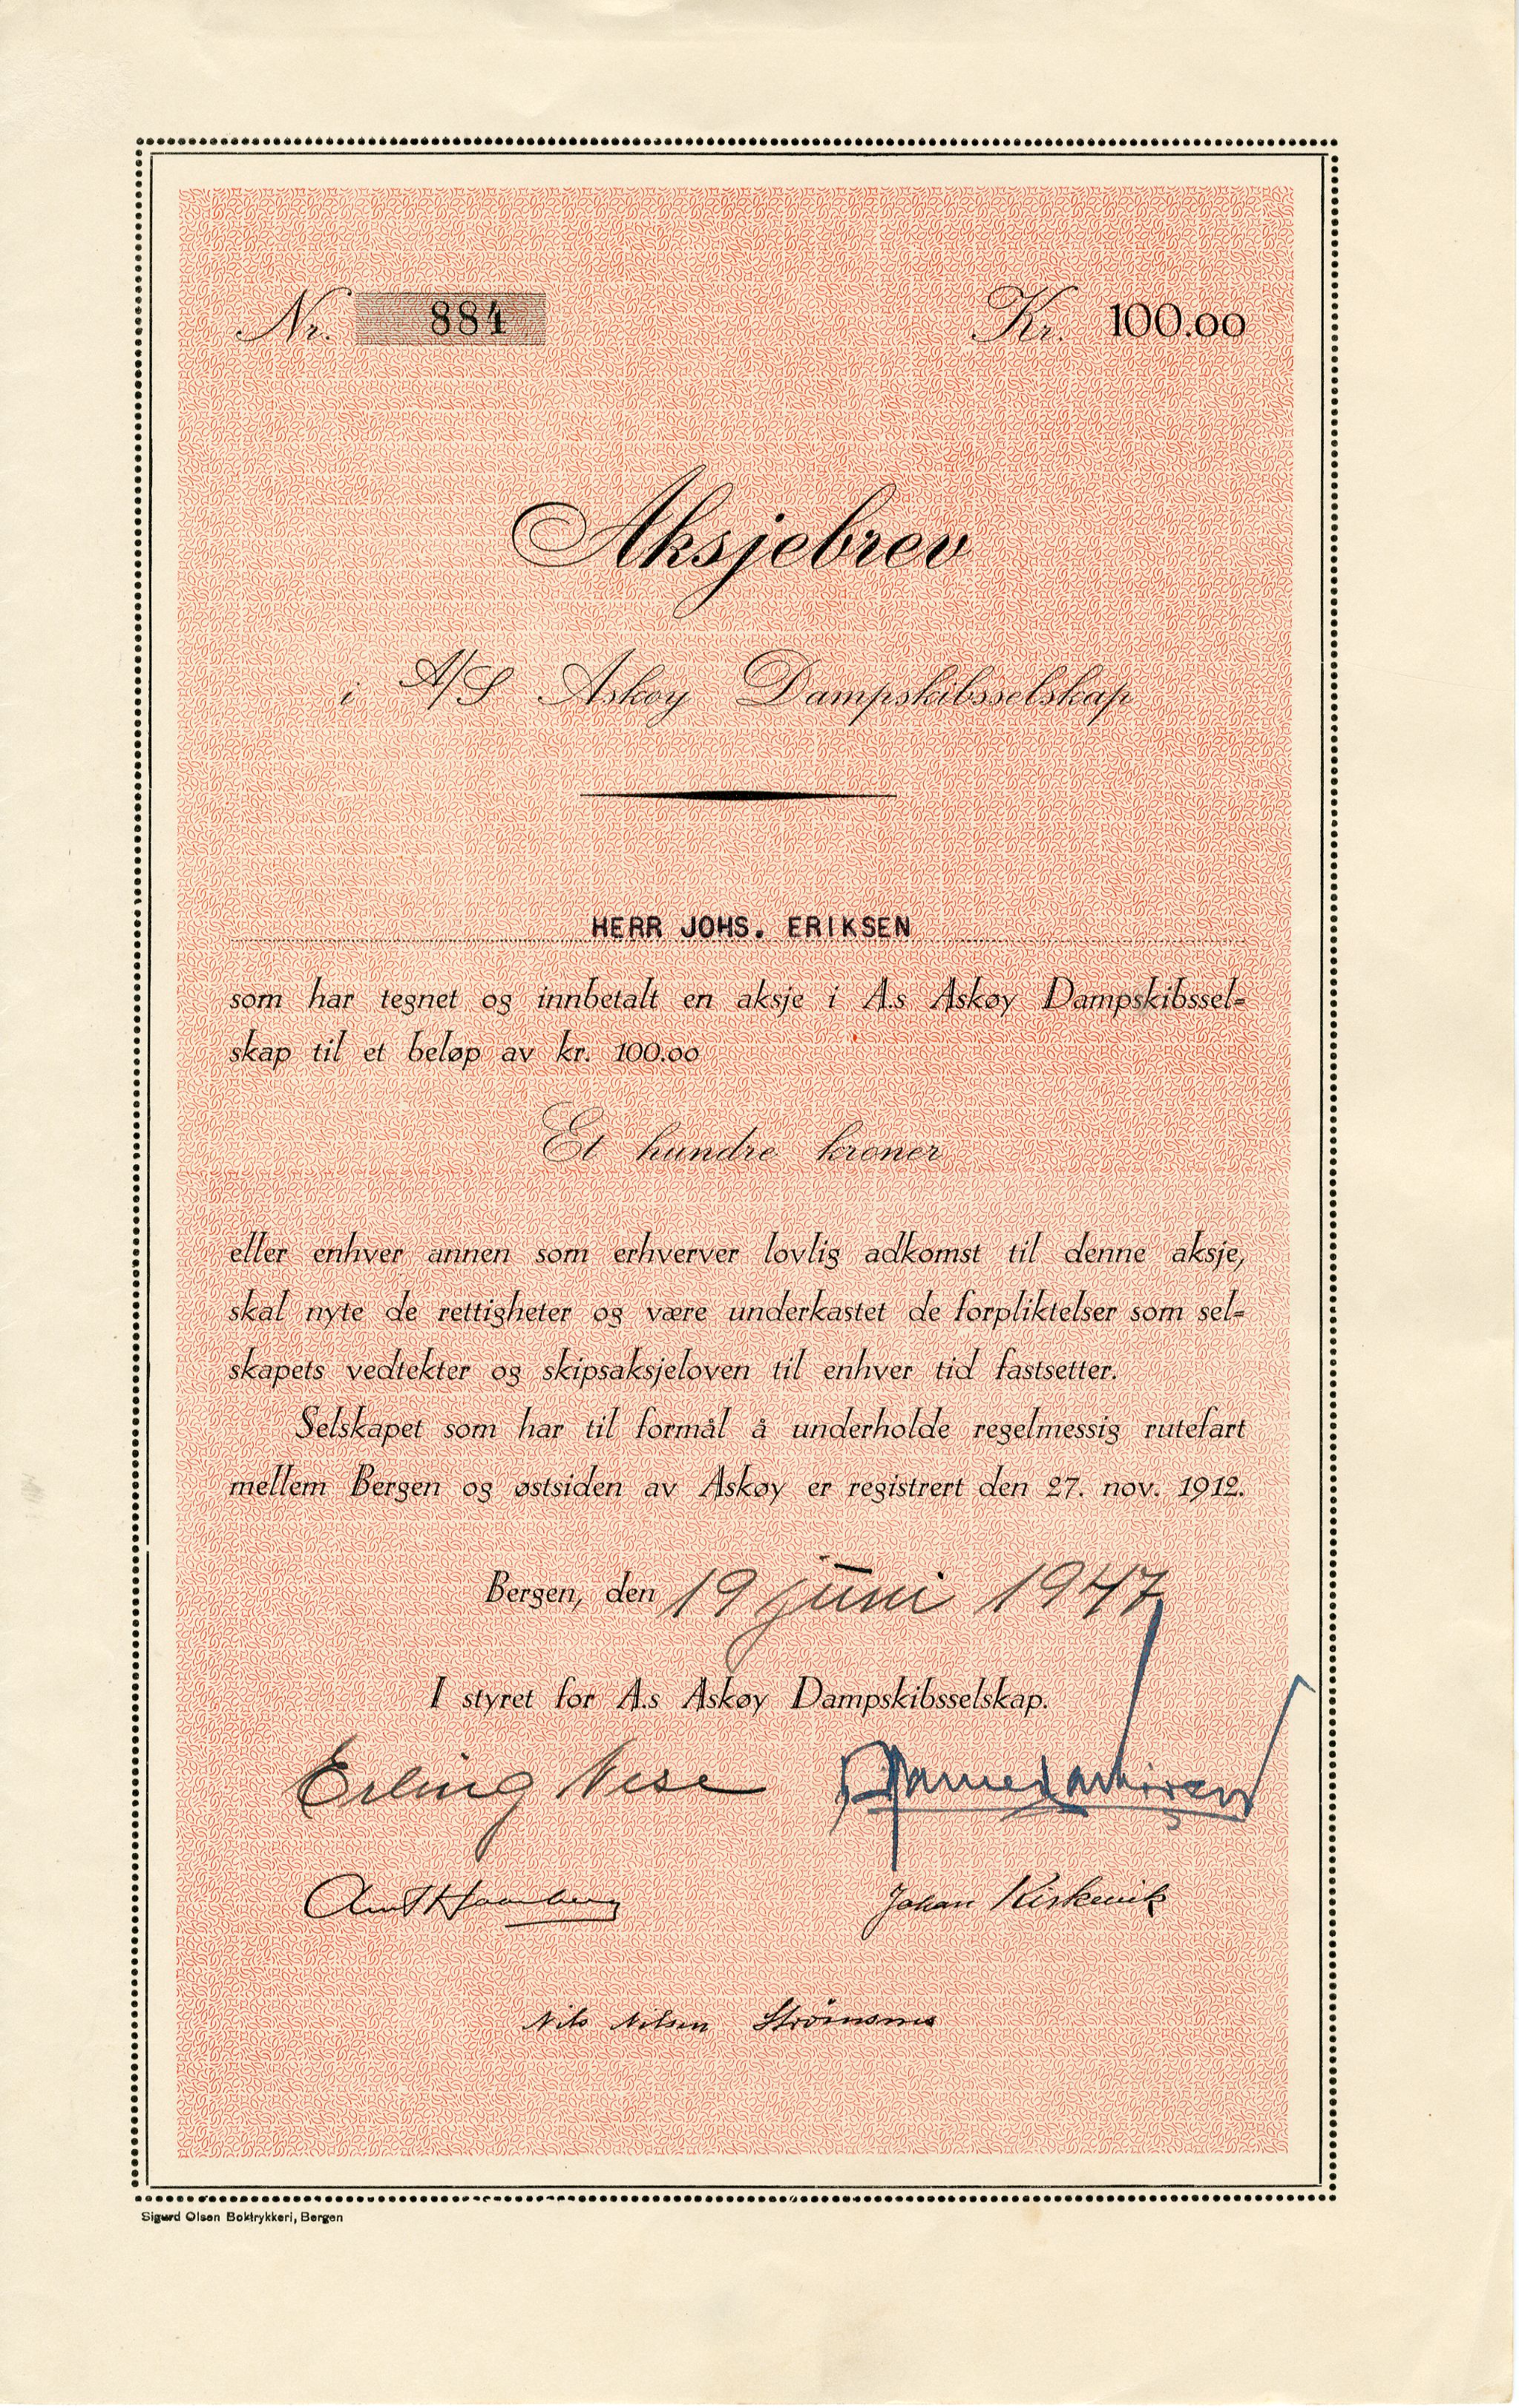 Nr. 884 Kr. 100.00
Aksjebrev
i A/S Askøy Dampskibsselskap
HERR JOHS. ERIKSEN
som har tegnet og innbetalt en aksje i A.s Askøy Dampskibssel=
skap til et beløp av kr. 100.00
Et hundre kroner
eller enhver annen som erhverver lovlig adkomst til denne aksje,
skal nyte de rettigheter og være underkastet de forpliktelser som sel=
skapets vedtekter og skipsaksjeloven til enhver tid fastsetter.
Selskapet som har til formål å underholde regelmessig rutefart
mellem Bergen og østsiden av Askøy er registrert den 27. nov. 1912.
Bergen, den 19 juni 1947
I styret for A.s Askøy Dampskibsselskap.
Erling Nese
Johan Kirkevik
Nils Nilsen Strømsnes
Sigurd Olsen Boktrykkeri, Bergen